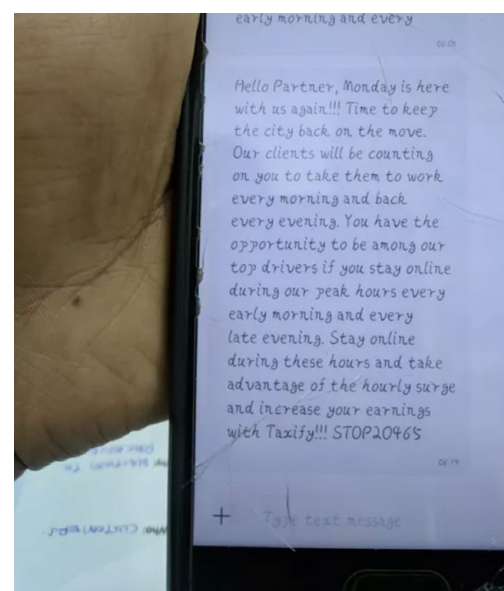 early morning and every
06:09
Hello Partner, Monday is here
with us again!!! Time to keep
the city back on the move.
Our clients will be counting
on you to take them to work
every morning and back
every evening. You have the
opportunity to be among our
top drivers if you stay online
during our peak hours every
early morning and every
late evening. Stay online
during these hours and take
advantage of the hourly surge
and increase your earnings
with Taxify!!! STOP20465
06:14
+ Type text message
CUSTOMERS